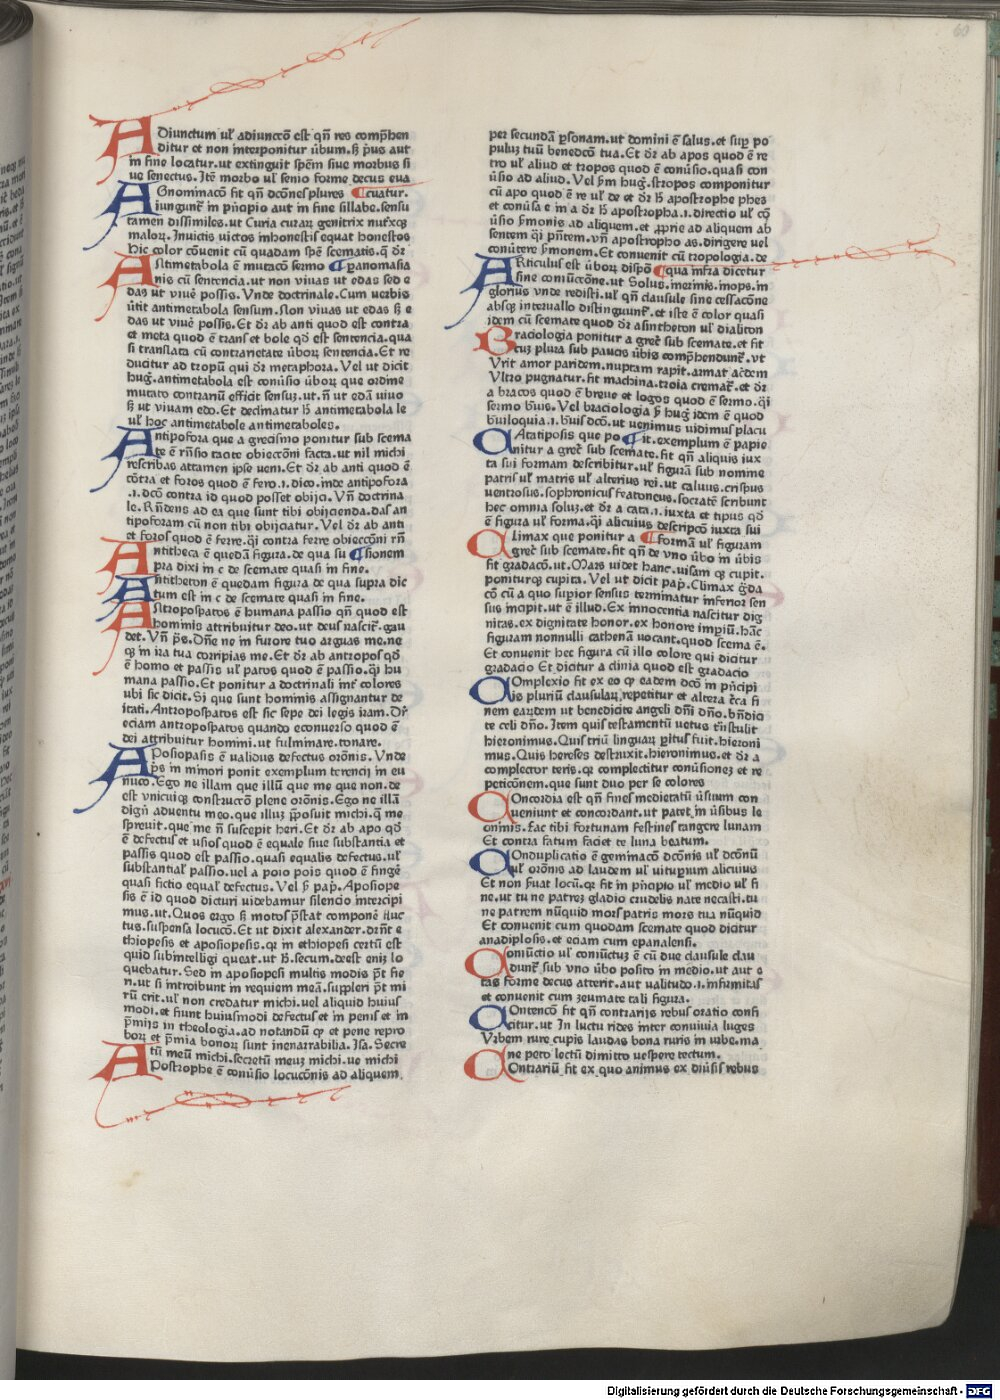 60
Adiunctum ul' adiunccō est qñ res comp̄hen
ditur et non interponitur ūbum. s̄ p̄us aut
in fine locatur. ut extinguit sp̄em siue morbus si
ue senectus. Itē morbo ul' senio forme decus eua
Agnominacō fit qñ dcōnes plures ¶ cuatur.
iungunt̄ in pñcipio aut in fine sillabe. sensu
tamen dissimiles. ut Curia curaꝝ genitrix nutꝛixqꝫ
maloꝝ. Inuictis victos inhonestis equat honestos
hic color cōuenit cū quadam sp̄e scematis. q̄ dꝛ
Antimetabola ē mutacō sermo ¶ panomasia
nis cū sentencia. ut non viuas ut edas sed e
das ut viuē possis. Vnde doctrinale. Cum uerbis
ūtit antimetabola sensum. Non viuas ut edas s̄ e
das ut viuē possis. Et dꝛ ab anti quod est contra
et meta quod ē trans et bole qd̄ est sentencia. qua
si translata cū contrarietate ūboꝝ sentencia. Et re
ducitur ad tropū qui dꝛ metaphora. Vel ut dicit
huḡ. antimetabola est conūsio ūboꝝ que ordine
mutato contrariū efficit sensuꝫ. ut. ñ ut edā viuo
s̄ ut viuam edo. Et declinatur h̄ antimetabola le
ul' hoc antimetabole antimetaboles.
Antipofora que a grecismo ponitur sub scema
te ē rñsio tacite obieccōni facta. ut nil michi
rescribas attamen ipse ueni. Et dꝛ ab anti quod ē
cōtra et foros quod ē fero .i. dico. inde antipofora
.i. dcō contra id quod posset obijci. Vñ doctrina
le. Rñdens ad ea que sunt tibi obijcienda. das an
tipoforam cū non tibi obijciatur. Vel dꝛ ab anti
et foros quod ē ferre. q̄i contra ferre obieccōni rñ
Antitheca ē quedā figura. de qua su ¶ sionem
pra dixi in c de scemate quasi in fine.
Antitheton ē quedam figura de qua supra dic
tum est in c de scemate quasi in fine.
Antropospatos ē humana passio qñ quod est
hominis attribuitur deo. ut deus nascit̄. gau
det. Vñ p̄s. Dñe ne in furore tuo arguas me. ne
qꝫ in ira tua corripias me. Et dꝛ ab antropos qd̄
ē homo et passis ul' patos quod ē passio. q̄i hu
mana passio. Et ponitur a doctrinali int̄ colores
ubi sic dicit. Si que sunt hominis assignantur de
itati. Antropospatos est sic sepe dei legis iram. Dꝛ
eciam antropospatos quando econuerso quod ē
dei attribuitur homini. ut fulminare. tonare.
Aposiopasis ē validus defectus orōnis. Vnde
p̄s in minori ponit exemplum terencij in eu
nuco. Ego ne illam que illū que me que non. de
est vnicuiqꝫ construccō plene orōnis. Ego ne illā
dign̄ aduentu meo. que illuꝫ p̄posuit michi. q̄ me
spreuit. que me ñ suscepit heri. Et dꝛ ab apo qd̄
ē defectus et usios quod ē equale siue substantia et
passis quod est passio. quasi equalis defectus. ul'
substantial' passio. uel a poio pois quod ē fingē
quasi fictio equal' defectus. Vel s̄ pap̄. Aposiope
sis ē id quod dicturi uidebamur silencio intercipi
mus. ut. Quos ergo s̄ motos p̄stat componē fluc
tus. suspensa locucō. Et ut dixit alexander. drñt̄ e
thiopesis et aposiopesis. qꝛ in ethiopesi certū est
quid subintelligi queat. ut B̄. secum. deest eniꝫ lo
quebatur. Sed in aposiopesi multis modis p̄t fie
ri. ut si introibunt in requiem meā. suppleri p̄t mi
rū erit. ul' non credatur michi. uel aliquid huius
modi. et fiunt huiusmodi defectus et in penis et in
p̄mijs in theologia. ad notandū qꝫ et pene repro
boꝝ et p̄mia bonoꝝ sunt inenarrabilia. Isa. Secre
tū meū michi. secretū meuꝫ michi. ue michi
Apostrophe ē conūsio locucōnis ad aliquem
per secundā p̄sonam. ut domini ē salus. et sup̄ po
puluꝫ tuū benedcō tua. Et dꝛ ab apos quod ē re
tro ul' aliud et tropos quod ē conūsio. quasi con
ūsio ad aliud. Vel s̄m huḡ. stropos componitur
cū apo quod ē re ul' de et dꝛ h̄ apostrophe phes
et conūsa e in a dꝛ h̄ apostropha .i. directio ul' cō
ūsio s̄monis ad aliquem. et p̄prie ad aliquem ab
sentem q̄i p̄ntem. vñ apostropho as. dirigere uel
conūtere s̄monem. Et conuenit cū tropologia. de
Articulus est ūboꝝ dispō ¶ qua infra dicetur
sine coniūccōne. ut Solus. inermis. inops. in
glorius vnde redisti. ul' qñ clausule sine cessacōne
absqꝫ interuallo distinguunt̄. et iste ē color quasi
idem cū scemate quod dꝛ asintheton ul' dialiton
Braciologia ponitur a grec̄ sub scemate. et fit
cuꝫ plura sub paucis ūbis comp̄hendunt̄. vt
Vrit amor paridem. nuptam rapit. armat acdem
Vltro pugnatur. fit machina. troia cremat̄. et dꝛ
a bracos quod ē breue et logos quod ē sermo. q̄i
sermo b̄uis. Vel braciologia s̄ huḡ idem ē quod
b̄uiloquia .i. b̄uis dcō. ut uenimus uidimus placu
Catatiposis que po ¶ it. exemplum ē papie
nitur a grec̄ sub scemate. fit qñ aliquis iux
ta sui formam describitur. ul' figurā sub nomine
patris ul' matris ul' alterius rei. ut caluus. crispus
uentrosus. sophronicus featoncus. socratē scribunt
hec omnia soluꝫ. et dꝛ a cata .i. iuxta et tipus qd̄
ē figura ul' forma. q̄i alicuius descripcō iuxta sui
Climax que ponitur a ¶ formā ul' figuram
grec̄ sub scemate. fit qñ de vno ūbo in ūbis
fit gradacō. ut. Mars uidet hanc. uisam qꝫ cupit.
poniturqꝫ cupita. Vel ut dicit pap̄. Climax ḡda
cō cū a quo sup̄ior sensus terminatur inferior sen
sus incipit. ut ē illud. Ex innocentia nascitur dig
nitas. ex dignitate honor. ex honore imp̄iū. hāc
figuram nonnulli cathenā uocant. quod scema ē.
Et conuenit hec figura cū illo colore qui dicitur
gradacio Et dicitur a clinia quod est gradacio
Complexio fit ex eo qꝫ eadem dcō in p̄ncipi
is pluriū clausulaꝝ repetitur et altera c̄ca fi
nem eaꝝdem ut benedicite angeli dñi dño. bñdici
te celi dño. Item quis testamentū uetus t̄nstulit
hieronimus. Quis triū linguaꝝ p̄itus fuit. hieroni
mus. Quis hereses destruxit. hieronimus. et dꝛ a
complector teris. qꝛ complectitur conūsionez et re
peticōnem. que sunt duo per se colores
Concordia est qñ fines medietatū ūsuum con
ueniunt et concordant. ut patet in ūsibus le
oninis. Fac tibi fortunam festines tangere lunam
Et contra fatum faciet te luna beatum.
Conduplicatio ē geminacō dcōnis ul' dcōnū
ul' orōnis ad laudem ul' uituꝑium alicuius
Et non s̄uat locū. qꝛ fit in p̄ncipio ul' medio ul' fi
ne. ut tu ne patreꝫ gladio crudelis nate necasti. tu
ne patrem nūquid mors patris mors tua nūquid
Et conuenit cum quodam scemate quod dicitur
anadiplosis. et eciam cum epanalensi.
Coniūctio ul' coniūctuꝫ ē cū due clausule clau
dunt̄ sub vno ūbo posito in medio. ut aut e
tas forme decus atterit. aut ualitudo .i. infirmitas
et conuenit cum zeumate tali figura.
Contencō fit qñ contrarijs rebus oratio confi
citur. ut In luctu rides inter conuiuia luges
Vrbem rure cupis laudas bona ruris in urbe. ma
ne peto lectū dimitto uespere tectum.
Contrariū fit ex quo animus ex diūsis rebus
Digitalisierung gefördert durch die Deutsche Forschungsgemeinschaft - DFG